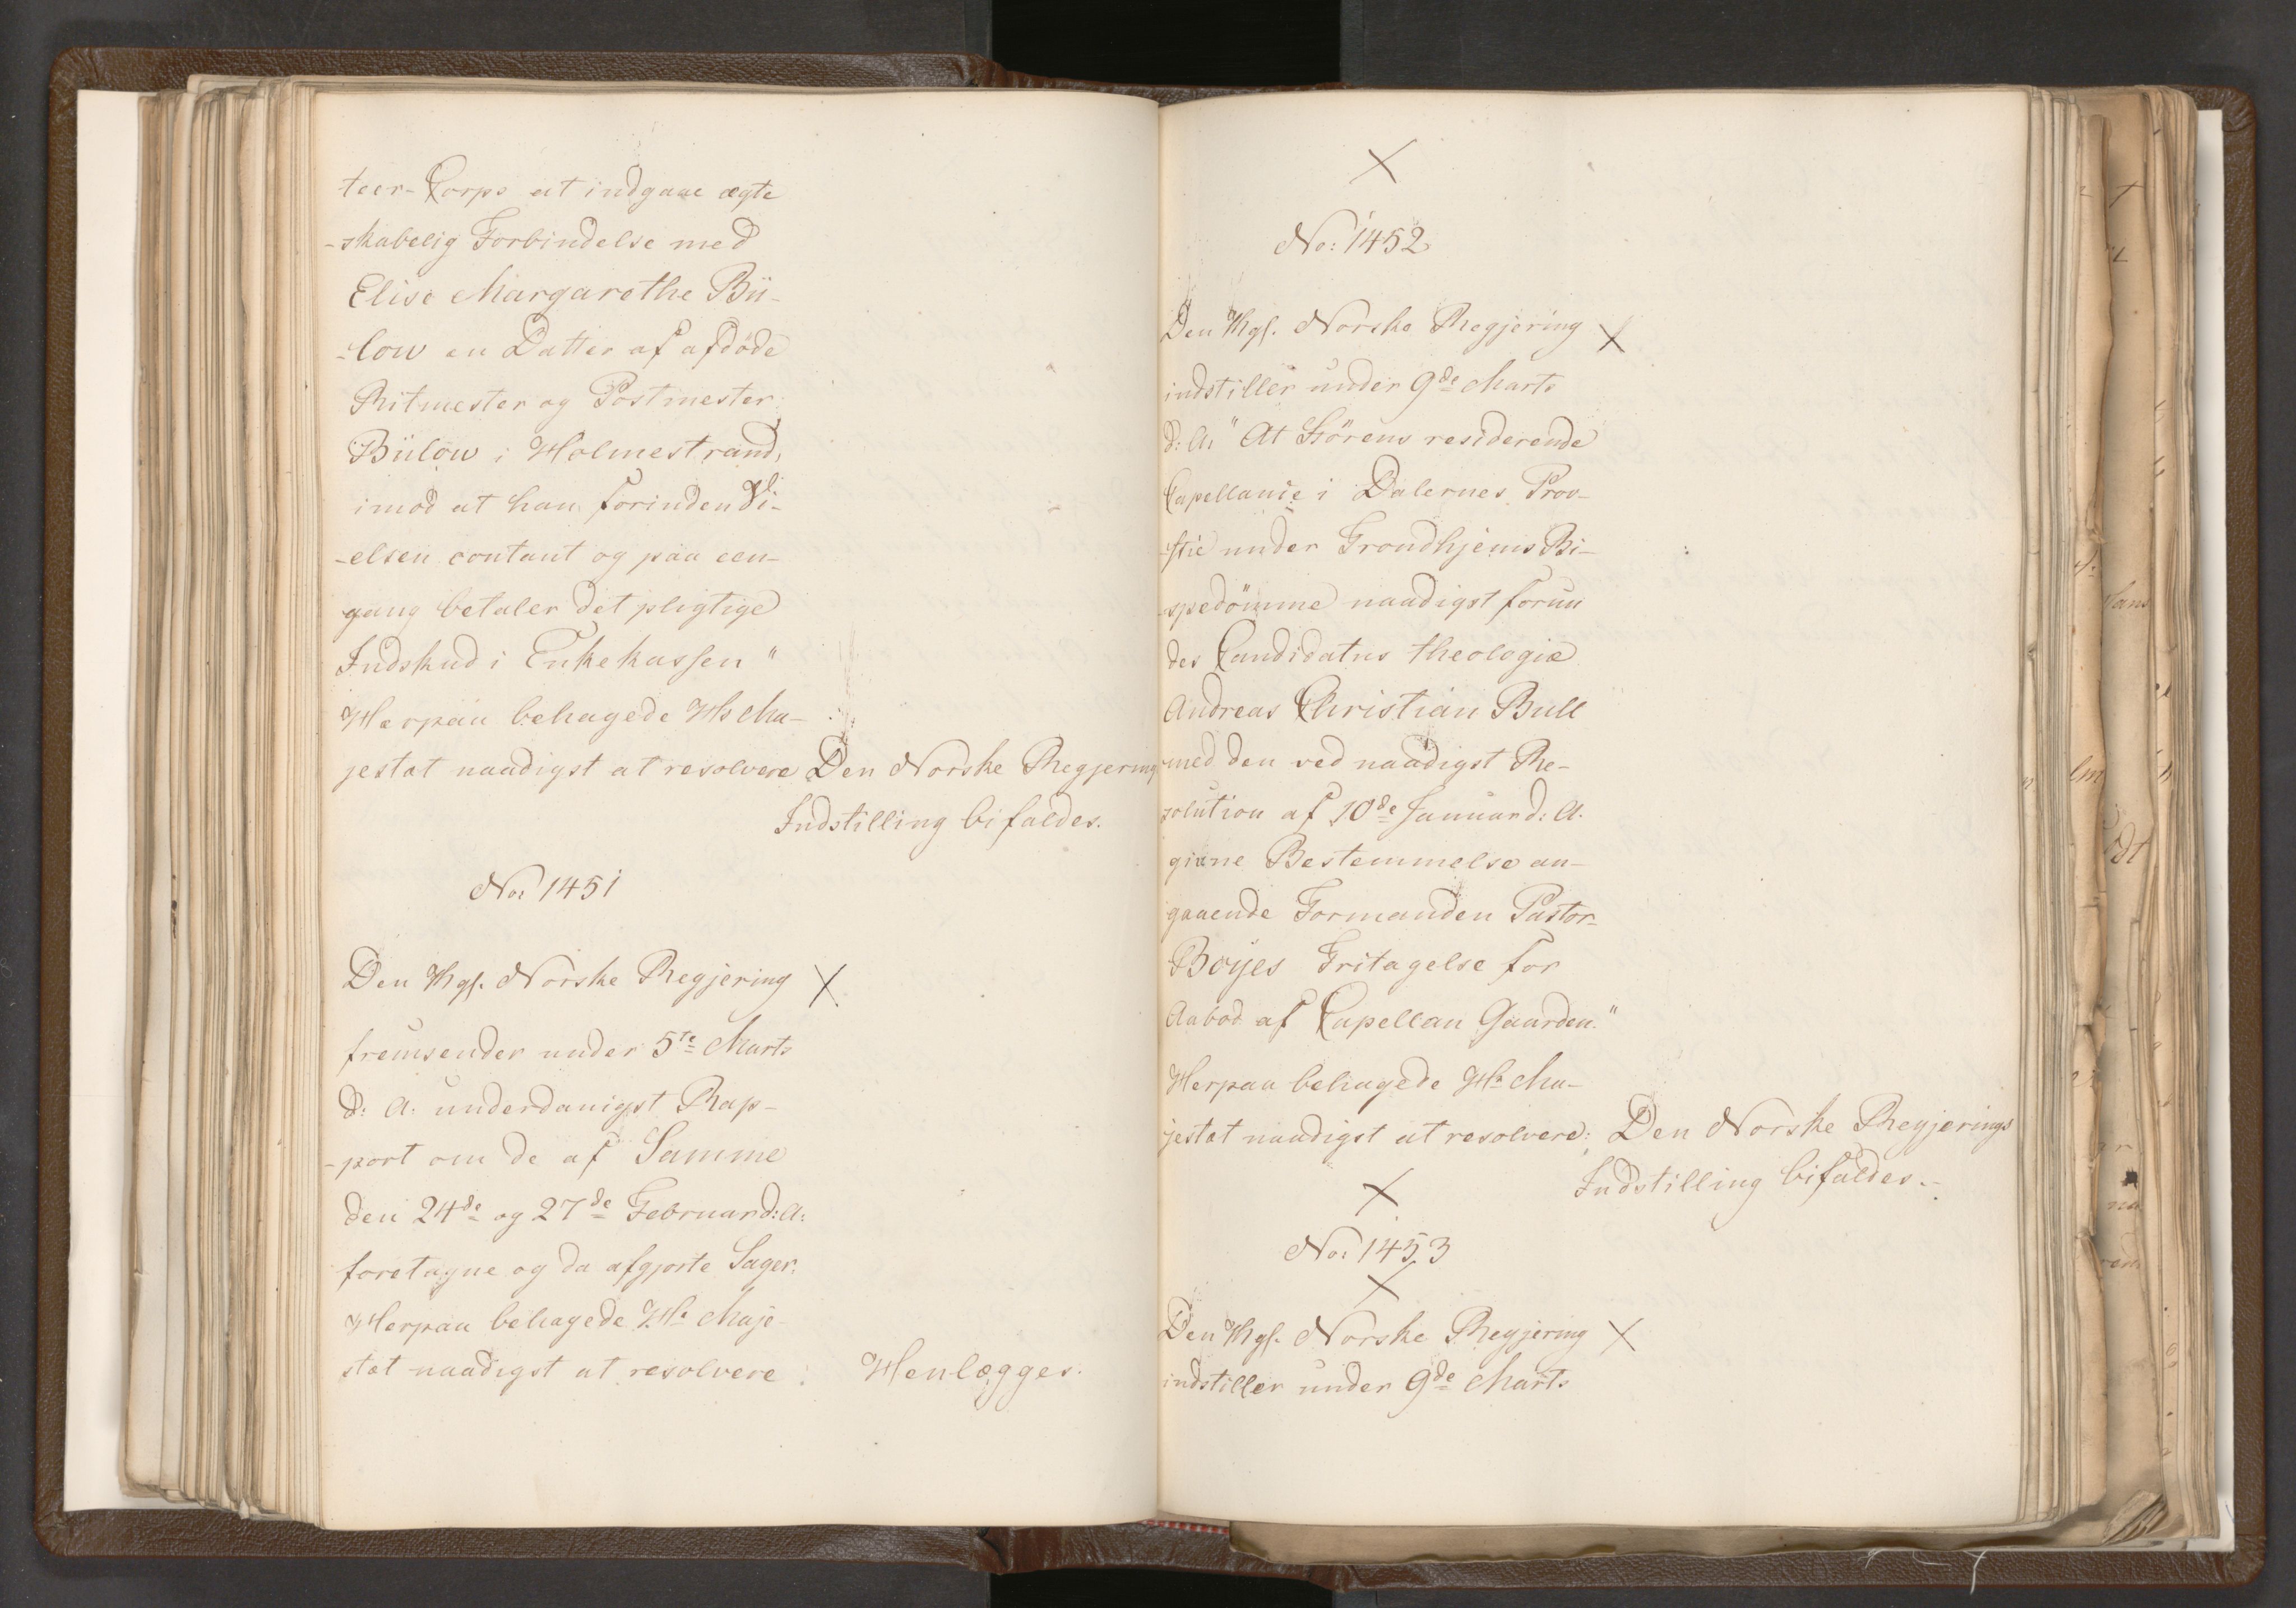 teer-Corps at indgaae ægte
-skabelig Forbindelse med
Elise Margarethe Bü-
-low en Datter af afdöde
Ritmester og Postmester
Bülow i Holmestrand,
imod at han forinden Vi-
-elsen contant og paa een-
gang betaler det pligtige
Indskud i Enkekassen"
Herpaa behagede Hs Ma-
jestæt naadigst at resolvere Den Norske Regjering
Indstilling bifaldes.
No: 1451
Den Kgl. Norske Regjering
fremsender under 5te Marts
d: A: underdanigst Rap-
-port om de af Samme
den 24de og 27de Februar d: A:
foretagne og da afgjorte Sager.
Herpaa behagede Hs Maje-
stæt naadigst at resolvere: Henlægges.
No: 1452
Den Kgl. Norske Regjering
indstiller under 9de Marts
d: A: "At Störens residerende
Capellanie i Dalernes Prov-
-stie under Trondhjems Bi-
-spedömme naadigst forun
des Candidatus theologiæ
Andreas Christian Bull
med den ved naadigst Re-
solution af 10de Januar d: A.
givne Bestemmelse an-
gaaende Formanden Pastor
Boyes Fritagelse for
Aabod af Capellan Gaarden."
Herpaa behagede Hs Ma-
jestæt naadigst at resolvere: Den Norske Regjerings
Indstilling bifaldes.-
No: 1453
Den Kgl. Norske Regjering
indstiller under 9de Marts